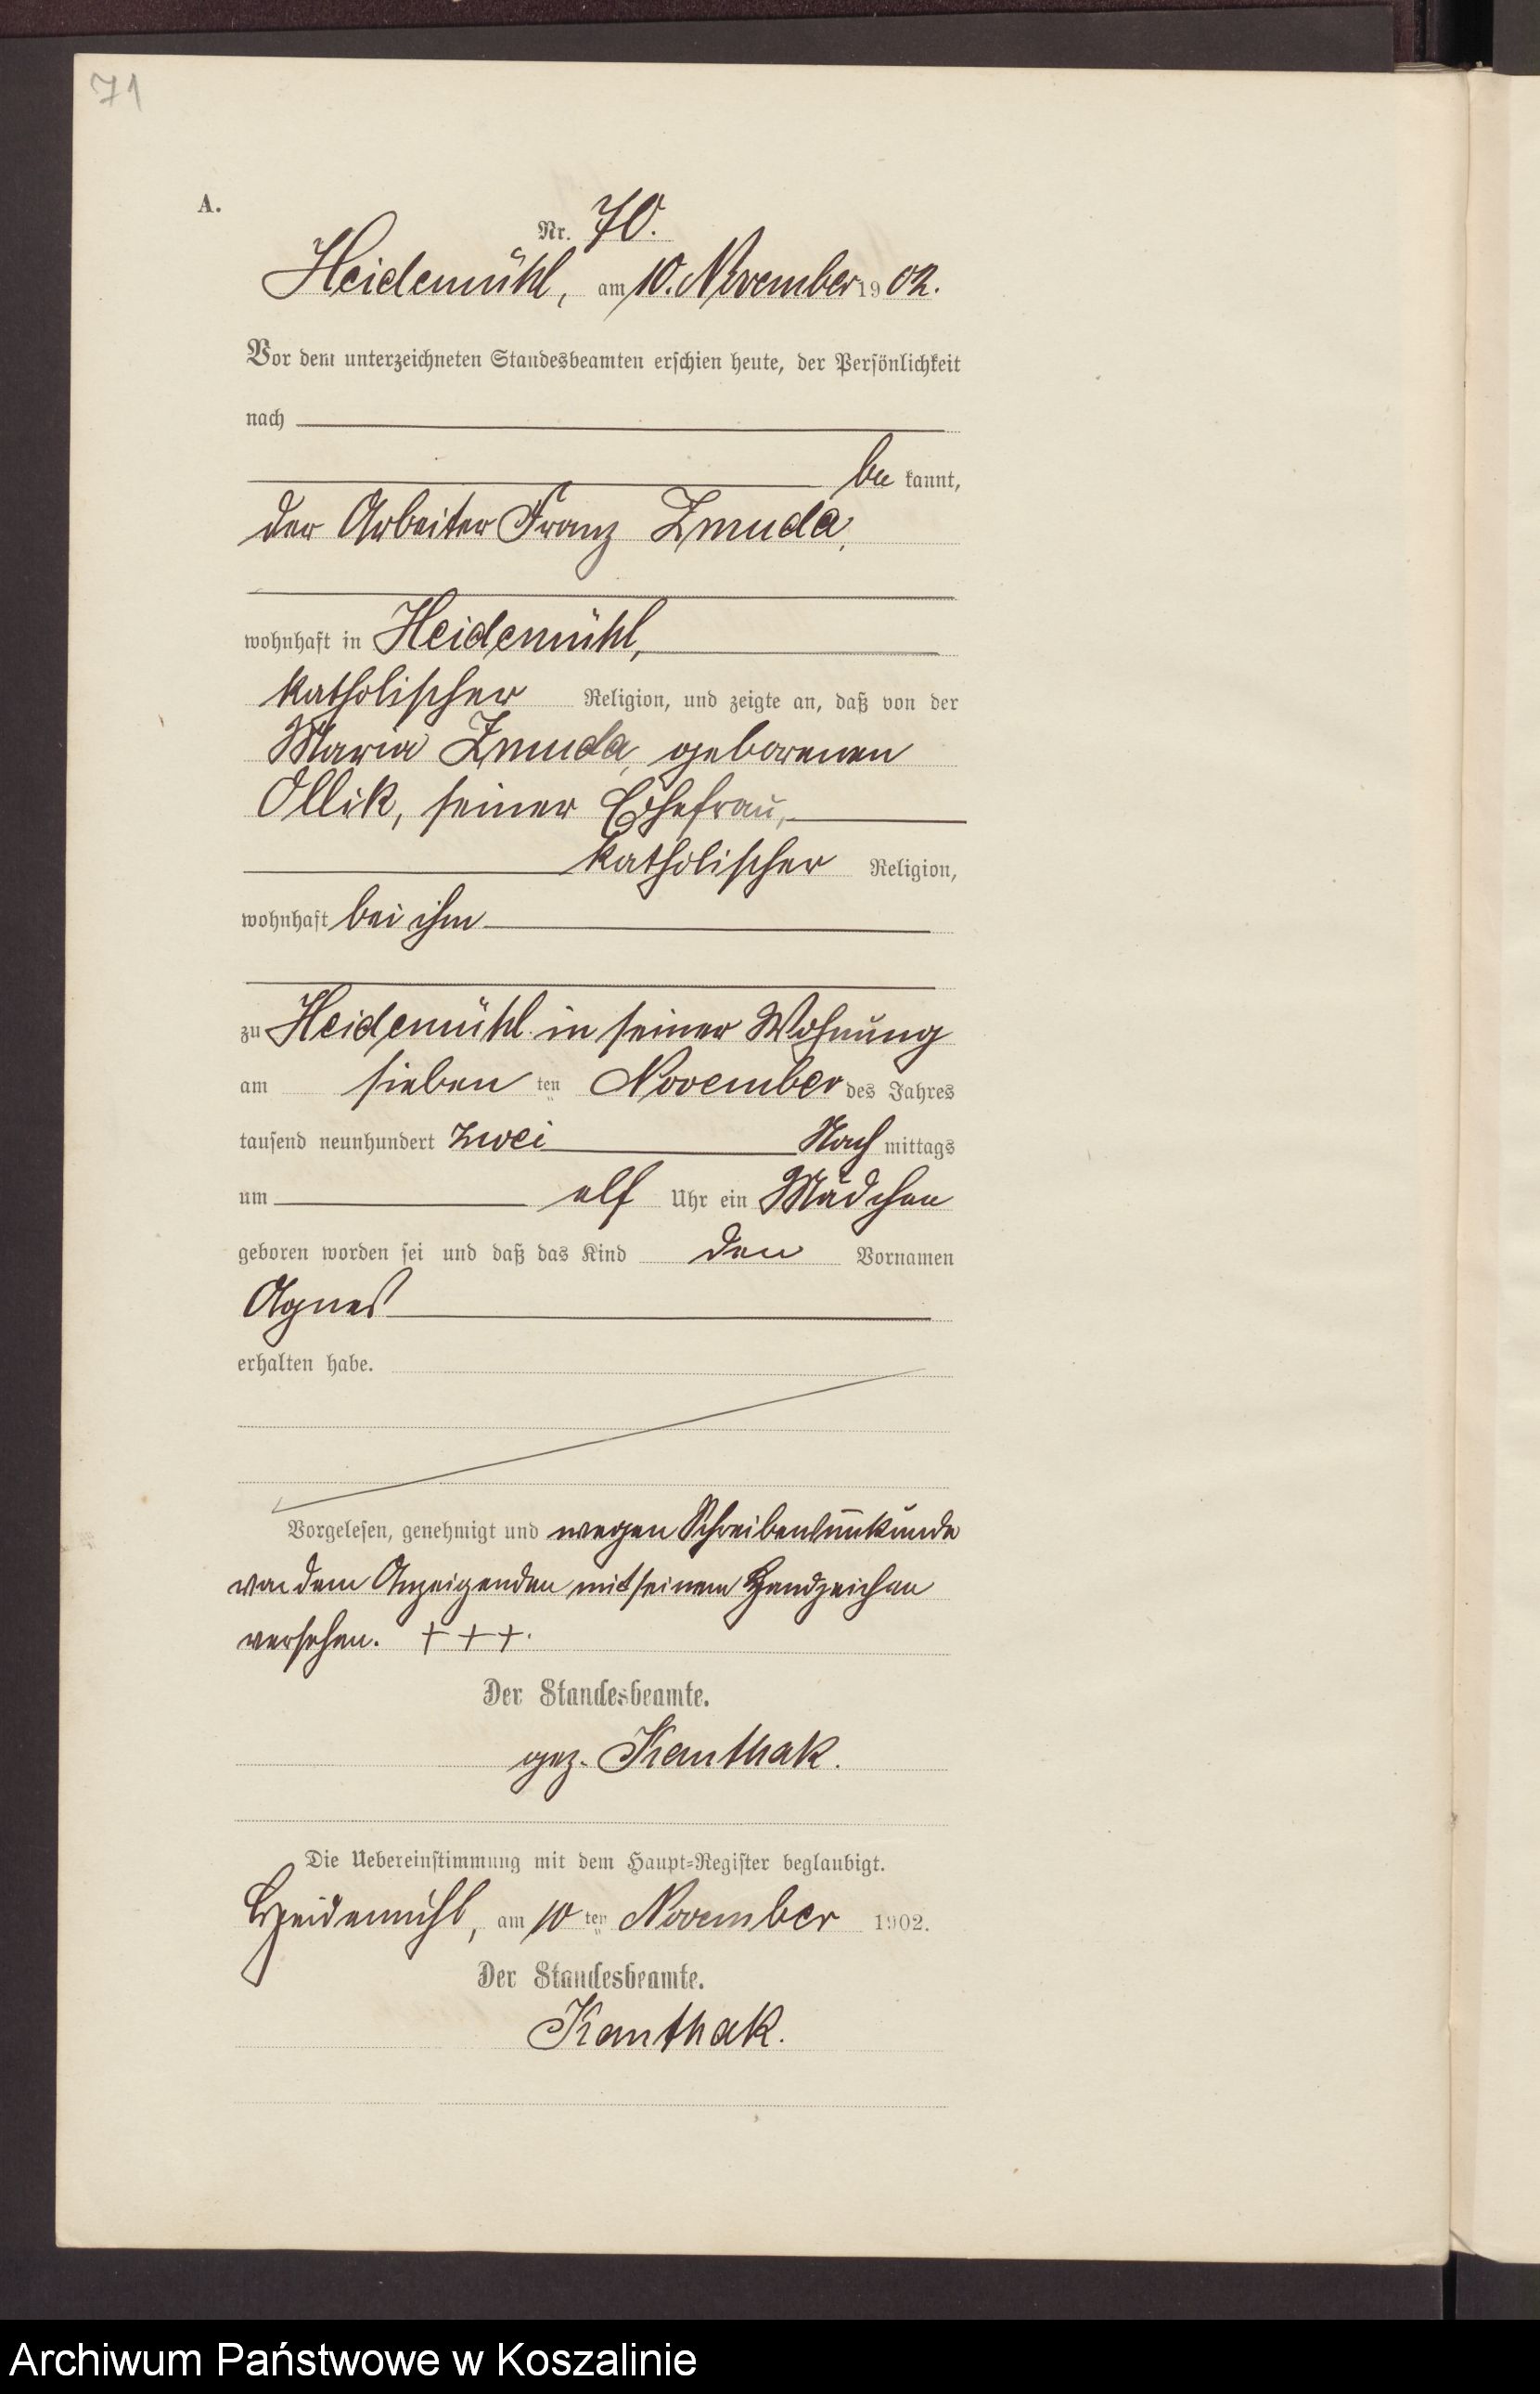 71
A.
Nr. 70.
Heidemühl, am 10. November 1902.
Vor dem unterzeichneten Standesbeamten erschien heute, der Persönlichkeit
nach
be kannt,
der Arbeiter Franz Zmuda,
wohnhaft in Heidemühl,
katholischer Religion, und zeigte an, daß von der
Maria Zmuda, geborenen
Ollik, seiner Ehefrau,
katholischer Religion,
wohnhaft bei ihm
zu Heidemühl in seiner Wohnung
am sieben ten November des Jahres
tausend neunhundert zwei Nach mittags
um elf Uhr ein Mädchen
geboren worden sei und daß das Kind den Vornamen
Agnes
erhalten habe.
Vorgelesen, genehmigt und wegen Schreibensunkunde
von dem Anzeigenden mit seinem Handzeichen
versehen. + + +.
Der Standesbeamte.
gez. Kanthak.
Die Uebereinstimmung mit dem Haupt-Register beglaubigt.
Heidemühl, am 10 ten November 1902.
Der Standesbeamte.
Kanthak.
Archiwum Państwowe w Koszalinie